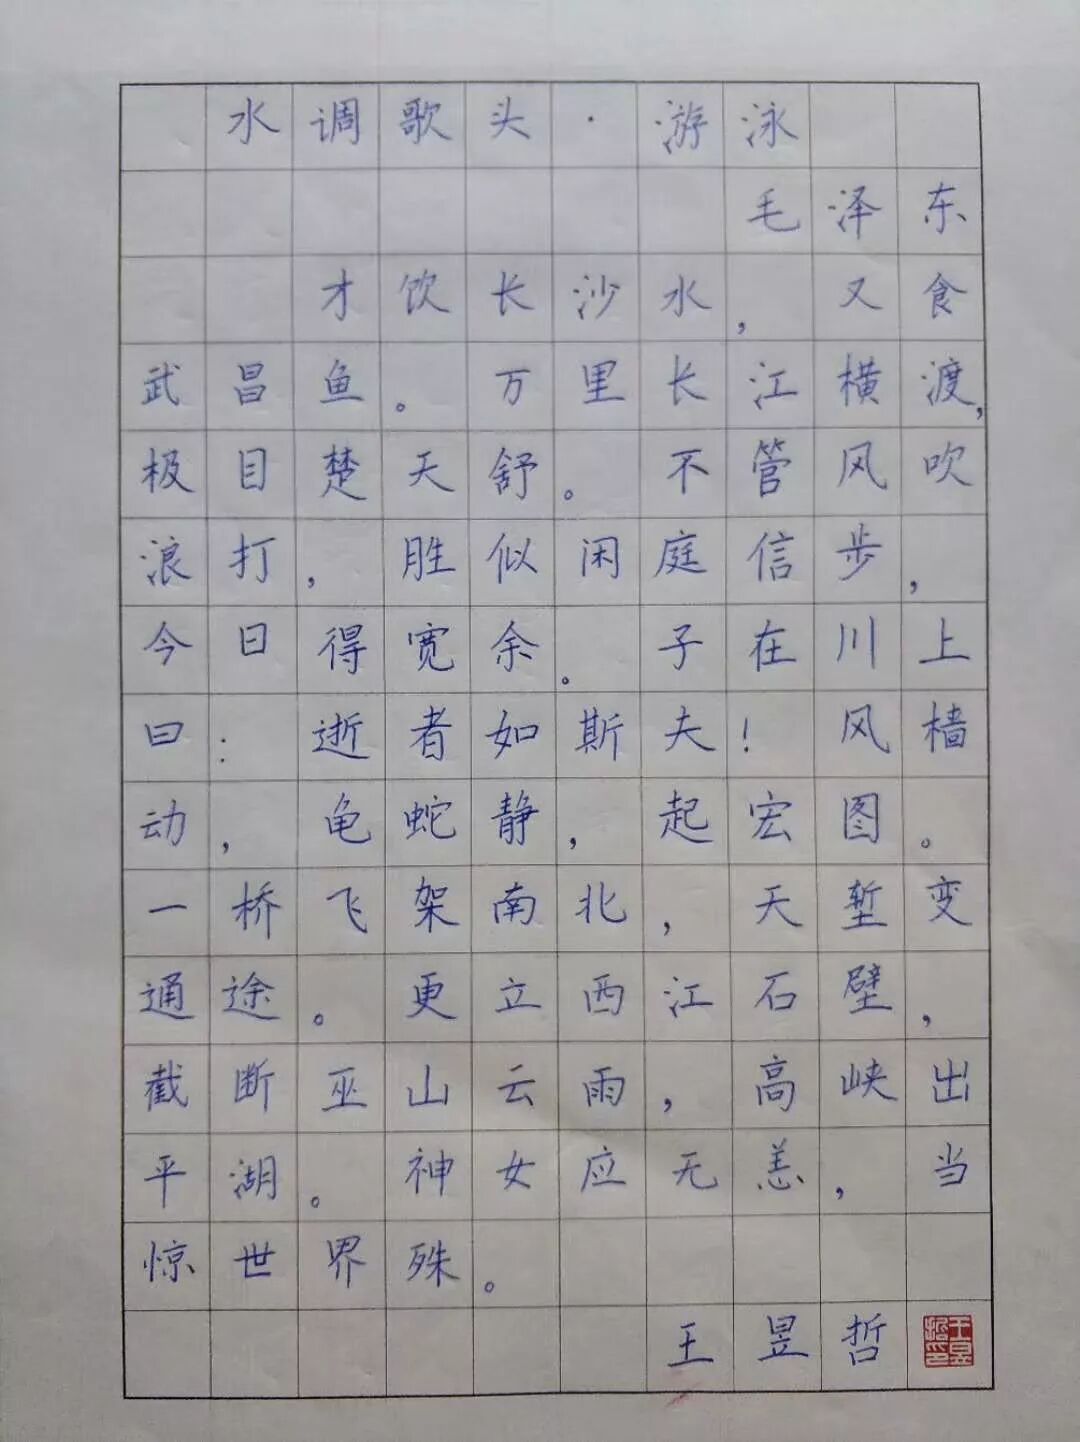 水调歌头·游泳
毛泽东
才饮长沙水，又食
武昌鱼。万里长江横渡，
极目楚天舒。不管风吹
浪打，胜似闲庭信步，
今日得宽余。子在川上
曰：逝者如斯夫！风樯
动，龟蛇静，起宏图。
一桥飞架南北，天堑变
通途。更立西江石壁，
截断巫山云雨，高峡出
平湖。神女应无恙，当
惊世界殊。
王昱哲
王昱哲印